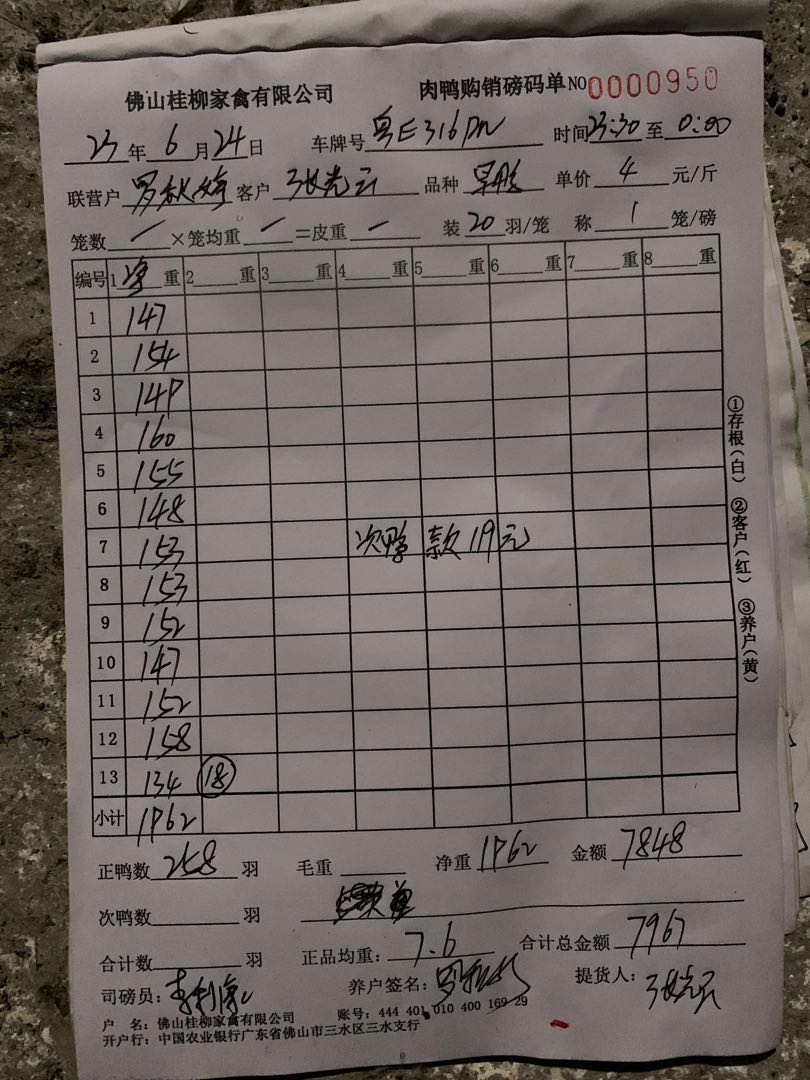 佛山桂柳家禽有限公司 肉鸭购销磅码单 NO 0000950
23年6月24日 车牌号 粤E316DN 时间23:30至0:00
联营户 罗秋 客户 张光云 品种 单价 4 元/斤
笼数 / ×笼均重 / =皮重 / 装20羽/笼 称 1 笼/磅
编号 1净重 2 重 3 重 4 重 5 重 6 重 7 重 8 重
1 147
2 154
3 149
4 160
5 155
6 148
7 153 次鸭款119元
8 153
9 152
10 147
11 152
12 158
13 134 18
小计 1962
①存根(白) ②客户(红) ③养户(黄)
正鸭数 258 羽 毛重 净重 1962 金额 7848
次鸭数 羽
合计数 羽 正品均重: 7.6 合计总金额 7967
司磅员: 养户签名: 提货人: 张光云
户 名: 佛山桂柳家禽有限公司 账号: 444 401 010 400 169 29
开户行: 中国农业银行广东省佛山市三水区三水支行